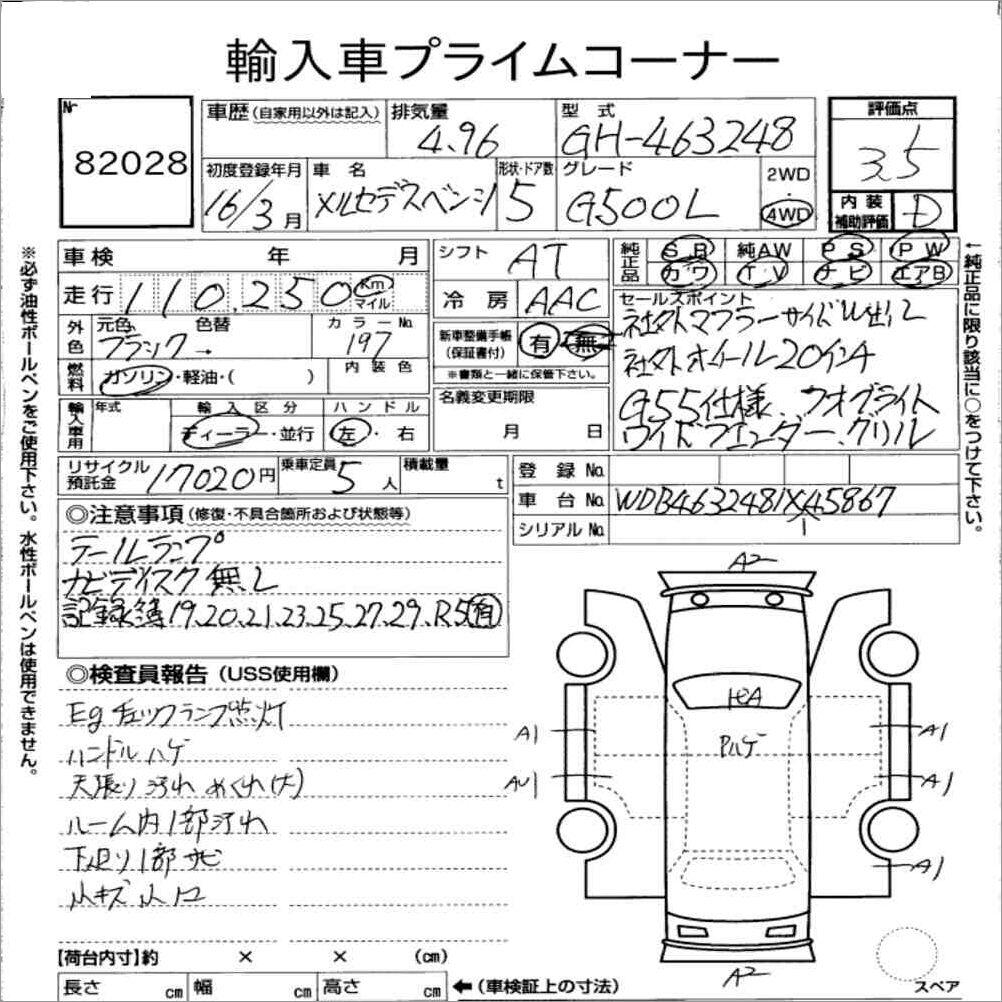 輸入車プライムコーナー
№ 82028
車歴(自家用以外は記入) 排気量 4.96 型式 GH-463248 評価点 3.5
初度登録年月 16/3月 車名 メルセデスベンツ 形状・ドア数 5 グレード G500L 2WD・4WD 内装補助評価 D
車検 年 月 シフト AT 純正品 SR 純AW PS PW
カワ TV ナビ エアB
走行 110,250 Km マイル 冷房 AAC
外色 元色 ブラック→ 色替 カラーNo. 197 新車整備手帳(保証書付) 有 無
※書類と一緒に保管下さい。
燃料 ガソリン・軽油・( ) 内装色
名義変更期限 月 日
セールスポイント
社外マフラーサイドW出し
社外ホイール20インチ
G55仕様、クオブライト
ワイドフェンダー、グリル
輸入車用 年式 輸入区分 ディーラー・並行 ハンドル 左・右
リサイクル預託金 17020円 乗車定員 5人 積載量 t
登録No.
車台No. WDB4632481X45867
1
シリアルNo.
◎注意事項(修復・不具合箇所および状態等)
テールランプ
ナビディスク無し
記録簿19.20.21.23.25.27.29.R5有
◎検査員報告(USS使用欄)
Egチェックランプ点灯
ハンドルハゲ
天張り汚れ めくれ(大)
ルーム内1部汚れ
下廻り1部サビ
小キズ小凹
A2
A1
AU1
Pハゲ
A1
A1
A1
A2
【荷台内寸】約 × × (cm)
長さ cm 幅 cm 高さ cm ←(車検証上の寸法)
スペア
※必ず油性ボールペンをご使用下さい。水性ボールペンは使用できません。
←純正品に限り該当に○をつけて下さい。